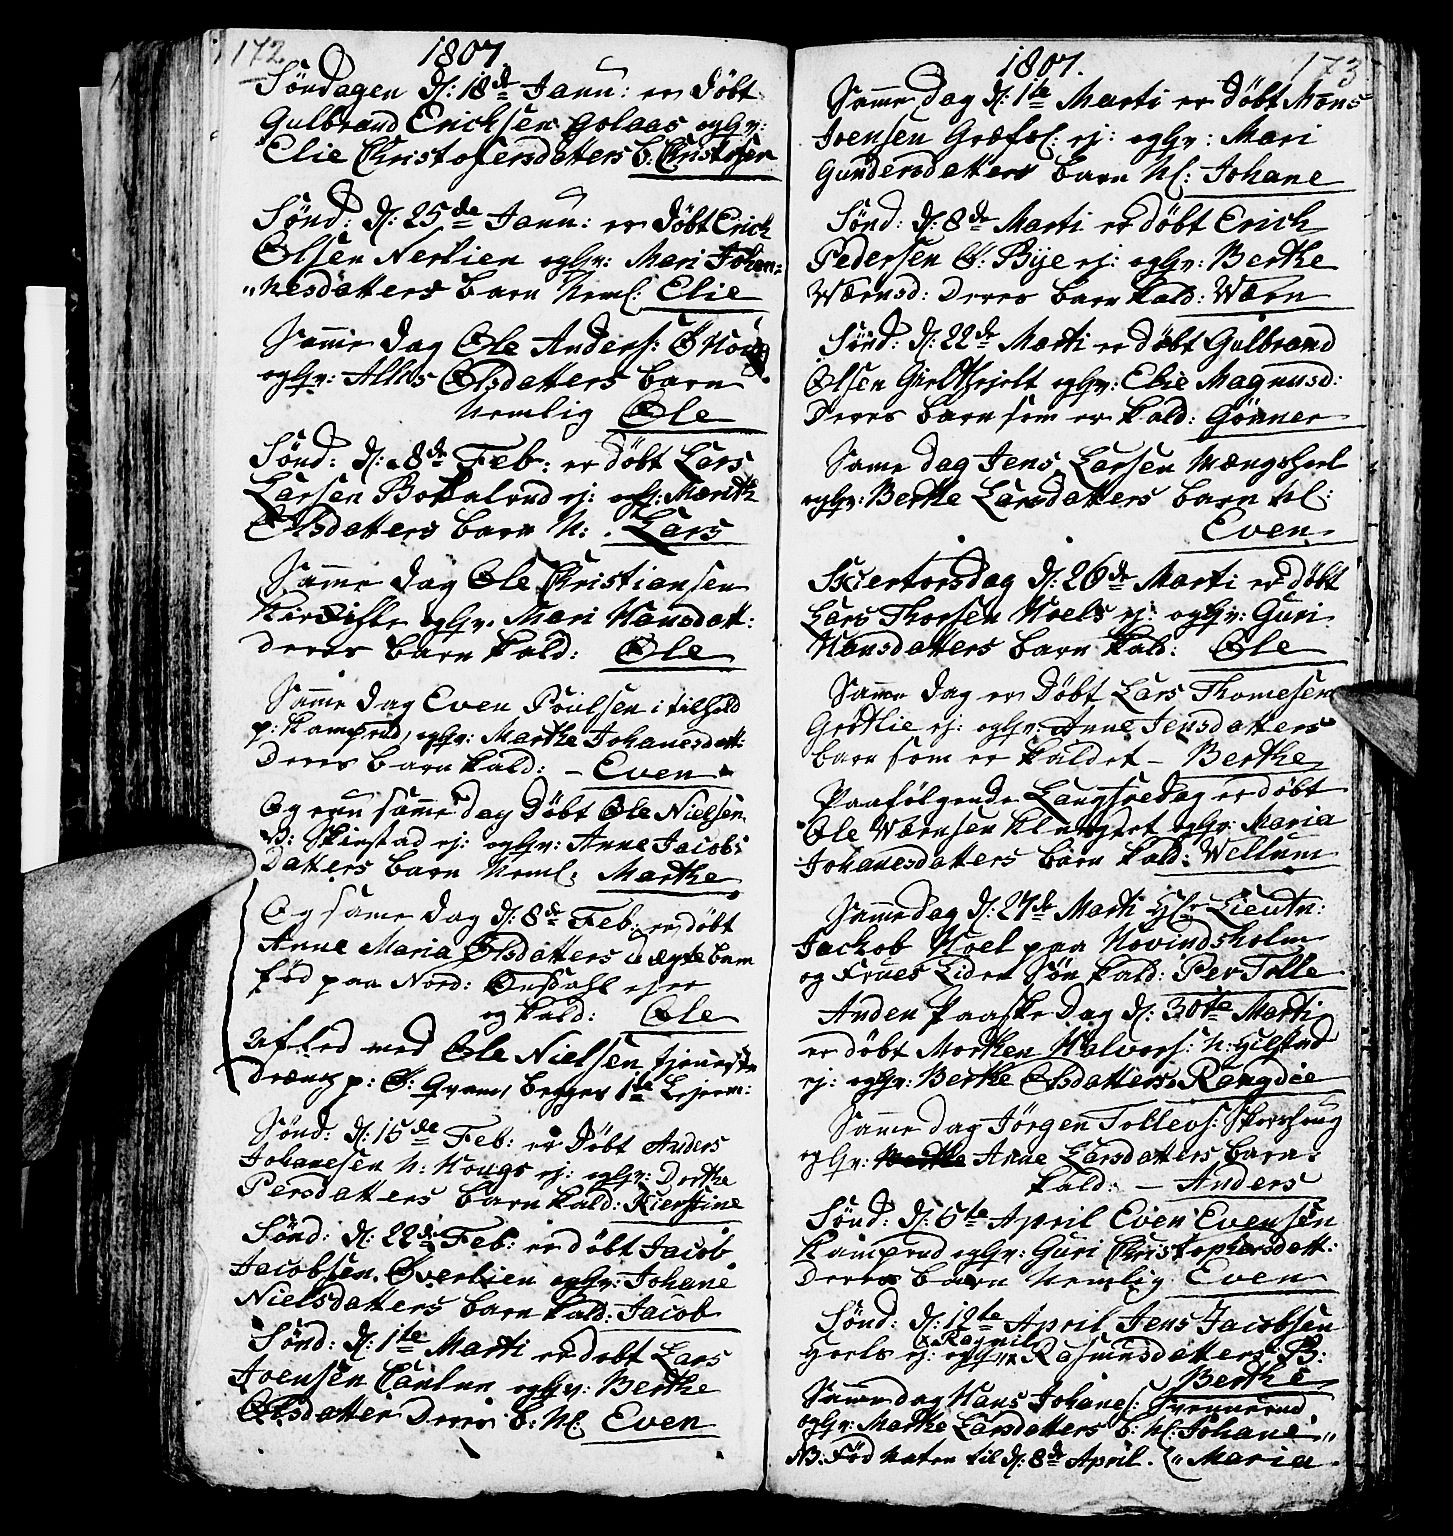 172
1807.
Söndagen d: 18de Janu: er döbt
Gulbrand Erichsen Golaas og hv:
Elie Christofersdatters b. Christofer
Sönd: d: 25de Janu: er döbt Erich
Olsen Nerlien og hv: Mari Johan=
"nesdatters barn Neml: Elie
Samme dag Ole Anders:
og hv: Olsdatters barn
nemlig Ole
Sönd: d: 8de Feb: er döbt Lars
Larsen ej: og hv: Marith
Olsdatters barn N: Lars
Samme dag Ole Christiansen
og hv. Mari Hansdatt:
deres barn kald: Ole
Samme dag Even Poulsen i tilhold
p: Kamprud, og hv: Marthe Johanesdatt:
Deres barn kald: - Even
Og samme dag döbt Ole Nielsen
Skiestad ej: og hv: Anne Jacobs
datters barn Neml: Marthe
Og same dag d: 8de Feb: er döbt
Anne Maria Olsdatters uægte barn
född paa Nord:
og kald: Ole
aflad med Ole Nielsen tjeneste
dræng p: begges 1te Lejerm:
Sönd: d: 15de Feb: er döbt Anders
Johanesen N: Hougs ej: og hv: Dorthe
Persdatters barn kald: Kierstine
Sönd: d: 22de Feb: er döbt Jacob
Jacobsen Överlien og hv: Johane
Nielsdatters barn kald: Jacob
Sönd: d: 1te Marti er döbt Lars
Joensen og hv: Berthe
Olsdatter Deres b: N: Even
173
1807.
Samme dag d: 1te Marti er döbt Mons
Joensen Græfs: ej: og hv: Mari
Gundersdatters barn N: Johane
Sönd: d: 8de Marti er döbt Erich
Pedersen Bye ej: og hv: Berthe
Wærnsd: Deres barn kald: Wærn
Sönd: d: 22de Marti er döbt Gulbrand
Olsen og hv: Elie Magnusd:
Deres barn som er kald: Gönner
Same dag Jens Larsen
og hv: Berthe Larsdatters barn N:
Even
Skiertorsdag d: 26de Marti er döbt
Lars Thorsen Hoels ej: og hv: Guri
Hansdatters barn kald: Ole
Samme dag er döbt Lars Thomesen
Grötlie ej: og hv: Anne Jensdatters
barn som er kaldet - Berthe
Paafölgende Langfredag er döbt
Ole Wærnsen og hv: Maria
Johanesdatters barn kald: Wellum
Samme dag d: 27de Marti Hr: Lieutn:
Jackob Hoel paa Hovindsholm
og Frues Liden Sön kald: Per Tolle
Anden Paaske Dag d: 30te Marti
er döbt Morthen Halvors: N: Gilstad
ej: og hv: Berthe Olsdatters Rangdie
Samme dag Jörgen Tollevs:
og hv: Anne Larsdatters barn
kald: - Anders
Sönd: d: 5te April Even Evensen
Kamprud og hv: Guri Christophersdatt:
Deres barn Nemlig Even
Sönd: d: 12te April Jens Jacobsen
ej: og hv: Rasmusdatters B:
Berthe
Samme dag Hans Johanes:
og hv: Marthe Larsdatters b: N: Johane "
NB. Föd Natten til d: 8de April. " Maria